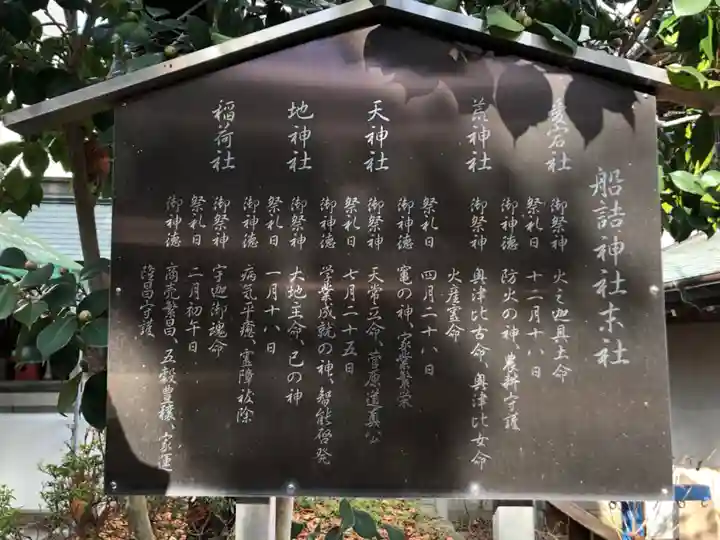 船詰神社末社
愛宕社
御祭神 火之迦具土命
祭礼日 十二月十八日
御神徳 防火の神、農耕守護
荒神社
御祭神 奥津比古命、奥津比女命
火産霊命
祭礼日 四月二十八日
御神徳 竃の神、家業繁栄
天神社
御祭神 天常立命、菅原道真公
祭礼日 七月二十五日
御神徳 学業成就の神、智能啓発
地神社
御祭神 大地主命、巳の神
祭礼日 一月十八日
御神徳 病気平癒、霊障祓除
稲荷社
御祭神 宇迦御魂命
祭礼日 二月初午日
御神徳 商売繁昌、五穀豊穣、家運
隆昌守護